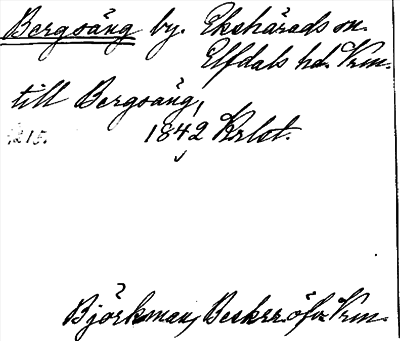 Bergsäng by. Ekshärads sn.
Elfdals hd. Vrm.
till Bergsäng,
215. 1842 Krlst.
Björkman, Beskr. öfv. Vrm.